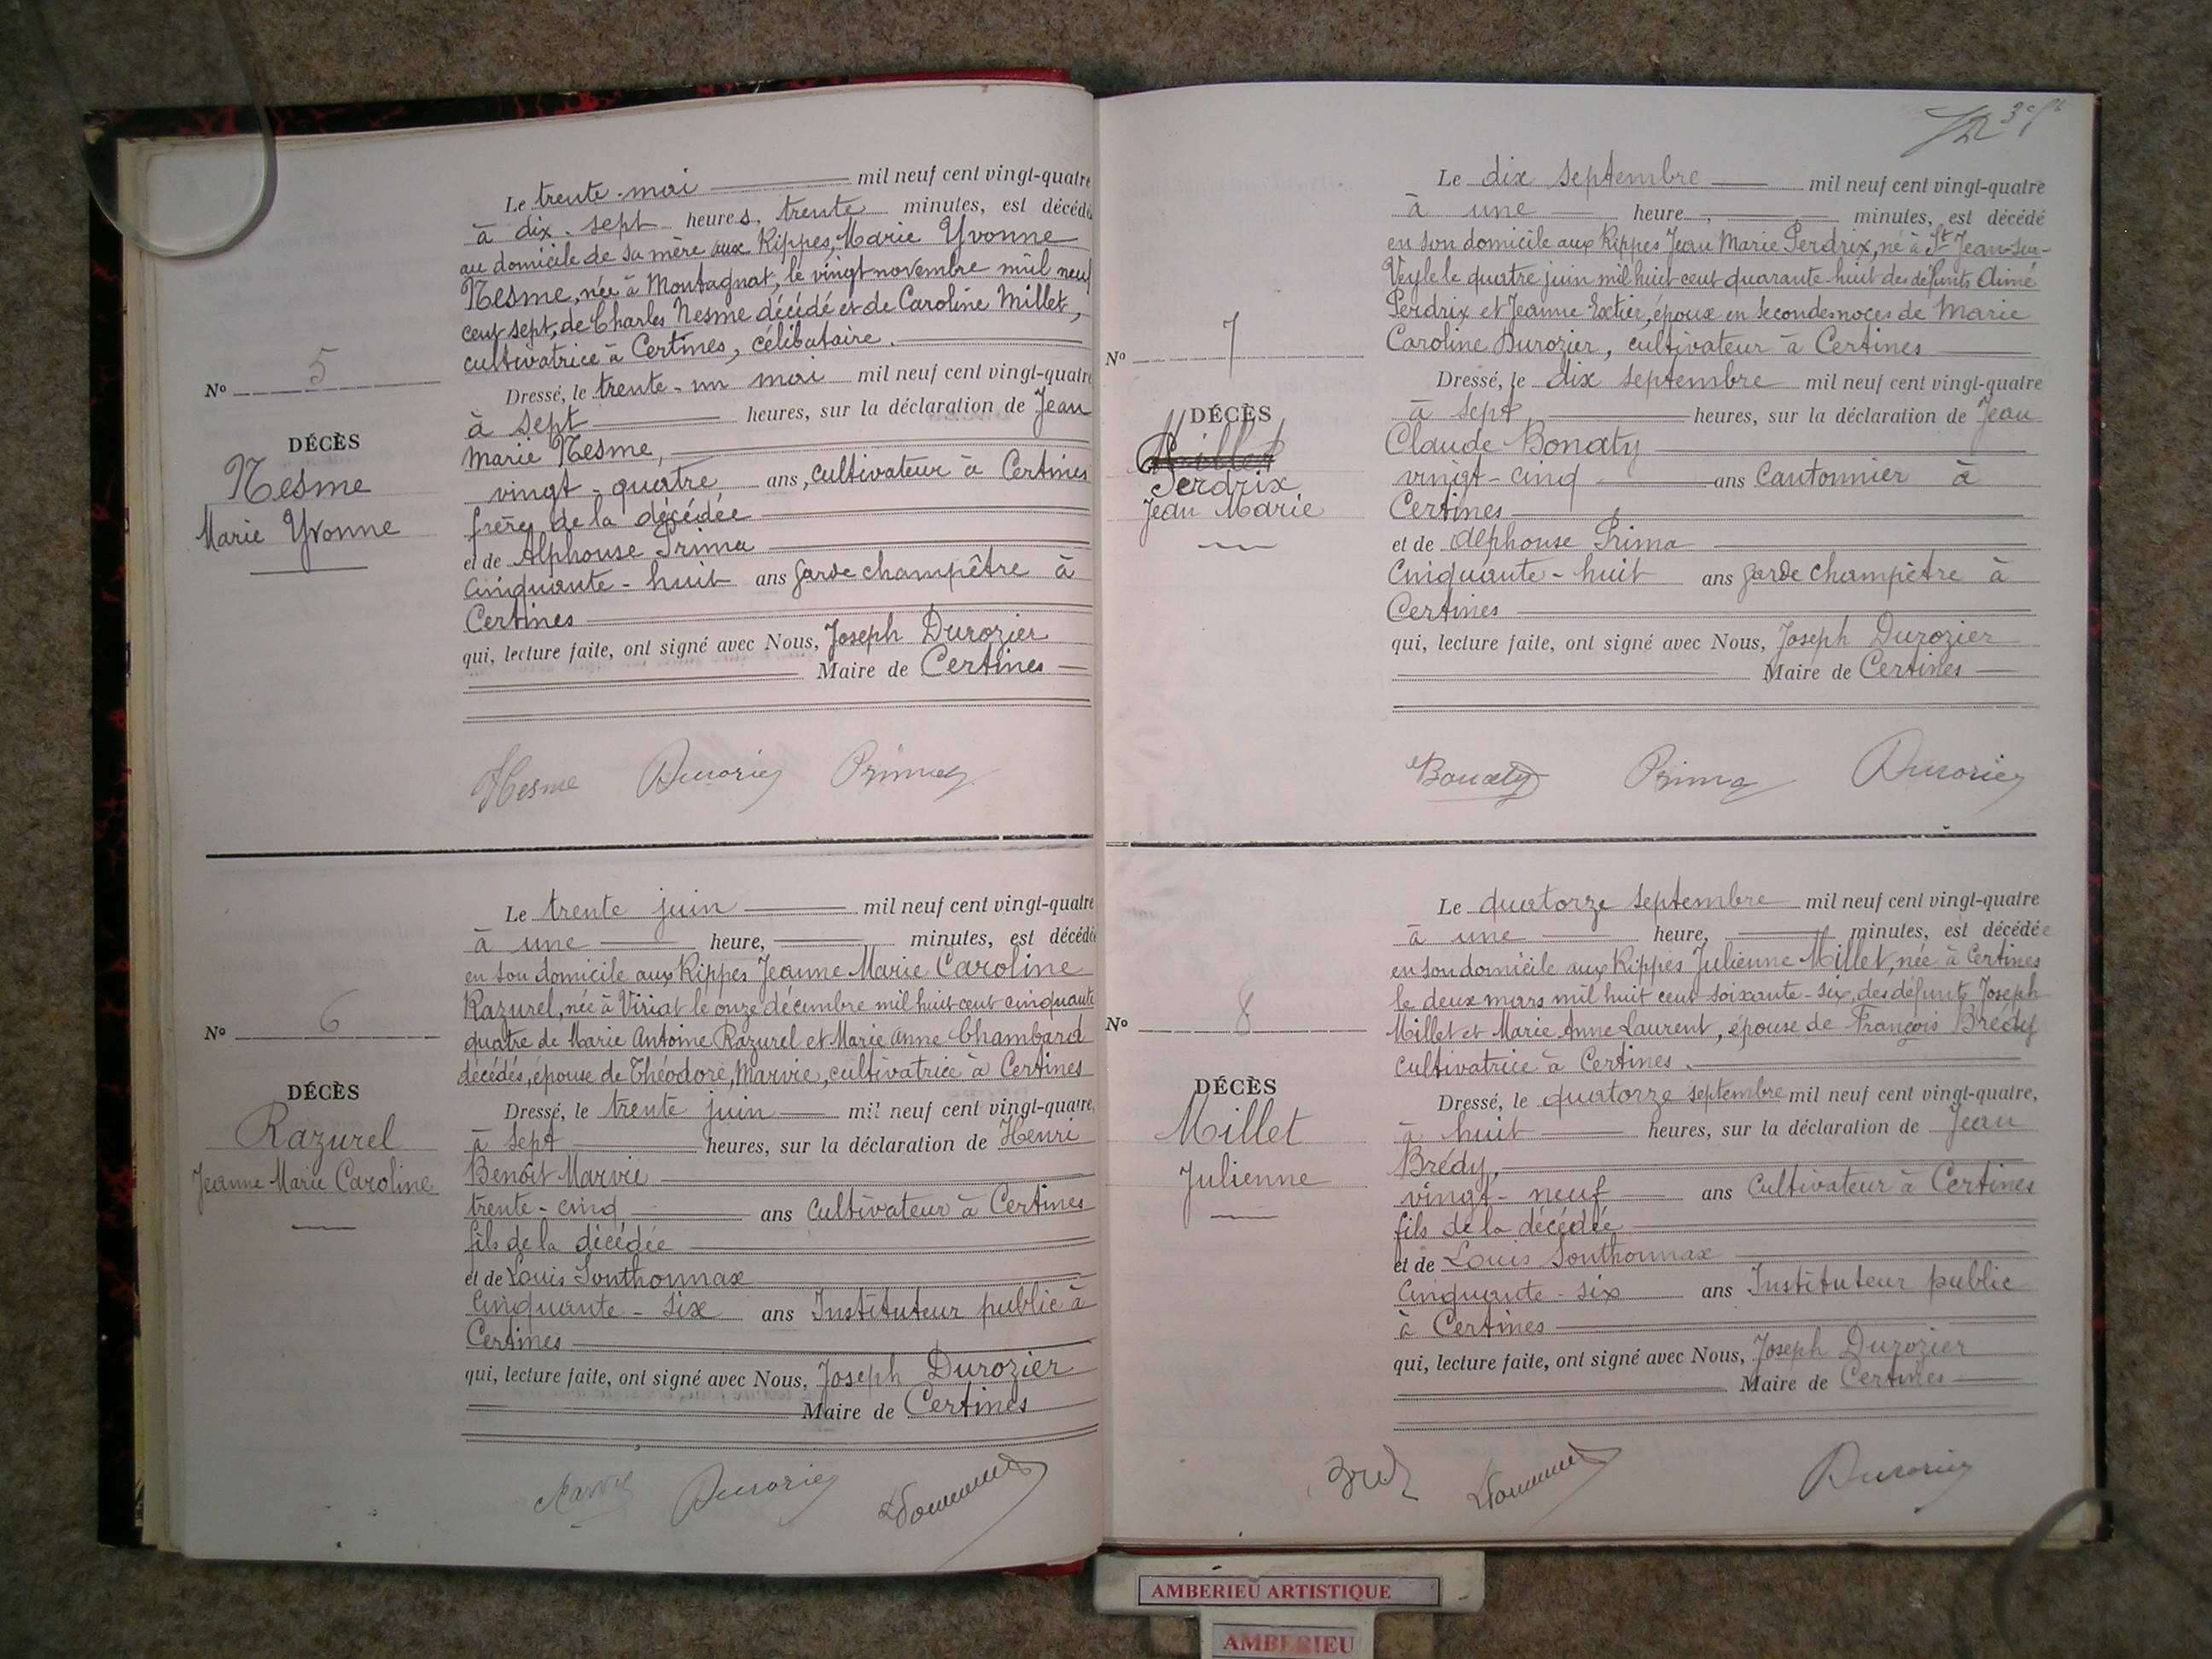 Le trente mai mil neuf cent vingt-quatre
à dix-sept heures, trente minutes, est décédé
au domicile de sa mère aux Rippes, Marie Yvonne
Nesme, née à Montagnat, le vingt novembre mil neuf
cent sept, de Charles Nesme décédé et de Caroline Millet,
cultivatrice à Certines, célibataire.
Nº 5
Dressé, le trente-un mai mil neuf cent vingt-quatre
à sept heures, sur la déclaration de Jean
DÉCÈS
Marie Nesme,
Nesme
vingt-quatre ans, cultivateur à Certines
Marie Yvonne
frère de la décédée
et de Alphonse Prima
cinquante-huit ans garde champêtre à
Certines
qui, lecture faite, ont signé avec Nous, Joseph Durozier
Maire de Certines
Nesme Durozier Prima
Le trente juin mil neuf cent vingt-quatre
à une heure, minutes, est décédé
en son domicile aux Rippes Jeanne Marie Caroline
Razurel, née à Viriat le onze décembre mil huit cent cinquante
Nº 6
quatre de Marie Antoine Razurel et Marie Anne Chambard
décédés, épouse de Théodore, Marvie, cultivatrice à Certines
DÉCÈS
Dressé, le trente juin mil neuf cent vingt-quatre,
Razurel
à sept heures, sur la déclaration de Henri
Jeanne Marie Caroline
Benoît Marvie
trente-cinq ans cultivateur à Certines
fils de la décédée
et de Louis Sonthonnax
cinquante-six ans Instituteur public à
Certines
qui, lecture faite, ont signé avec Nous, Joseph Durozier
Maire de Certines
Marvie Durozier
Le dix septembre mil neuf cent vingt-quatre
à une heure, minutes, est décédé
en son domicile aux Rippes Jean Marie Perdrix, né à St Jean-sur-
Veyle le quatre juin mil huit cent quarante-huit des défunts Aimé
Perdrix et Jeanne Extier, époux en secondes noces de Marie
Nº 7
Caroline Durozier, cultivateur à Certines
Dressé, le dix septembre mil neuf cent vingt-quatre
DÉCÈS
à sept, heures, sur la déclaration de Jean
Millet
Claude Bonaty
Perdrix
vingt-cinq ans Cantonnier à
Jean Marie
Certines
et de Alphonse Prima
cinquante-huit ans garde champêtre à
Certines
qui, lecture faite, ont signé avec Nous, Joseph Durozier
Maire de Certines
Bonaty Prima Durozier
Le quatorze septembre mil neuf cent vingt-quatre
à une heure, minutes, est décédée
en son domicile aux Rippes Julienne Millet, née à Certines
le deux mars mil huit cent soixante-six, des défunts Joseph
Nº 8
Millet et Marie Anne Laurent, épouse de François Brédy
cultivatrice à Certines.
DÉCÈS
Dressé, le quatorze septembre mil neuf cent vingt-quatre,
Millet
à huit heures, sur la déclaration de Jean
Julienne
Brédy,
vingt-neuf ans cultivateur à Certines
fils de la décédée
et de Louis Sonthonnax
cinquante-six ans Instituteur public
à Certines
qui, lecture faite, ont signé avec Nous, Joseph Durozier
Maire de Certines
Durozier
AMBERIEU ARTISTIQUE
AMBERIEU